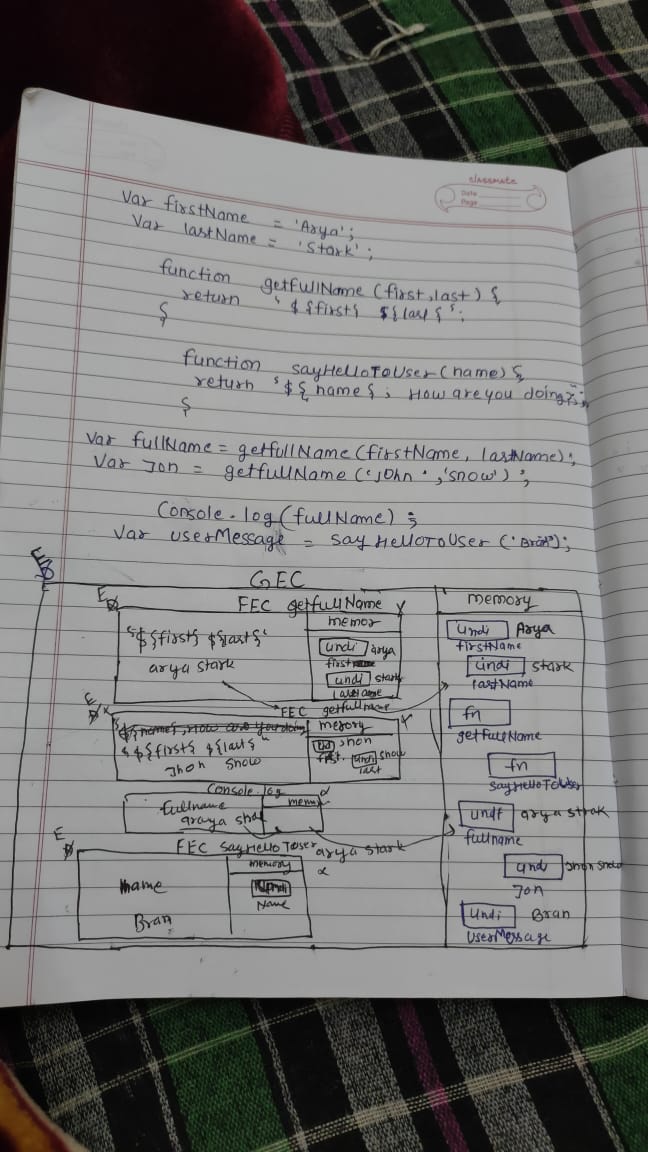 classmate
Date
Page
Var firstName = 'Arya';
Var lastName = 'Stark';
function getfullName (first, last) {
return `${first} ${last}`;
}
function sayHelloToUser (name) {
return `${name}; How are you doing?`;
}
Var fullName = getfullName (firstName, lastName);
Var Jon = getfullName ('John', 'snow');
Console.log (fullName);
Var userMessage = say HelloToUser ('Bran');
GEC
FEC getfullName
memor
`${first} ${last}`
arya stark
undi arya
first
undi stark
lastname
FEC getfullname
memory
`${first} ${last}`
Jhon Snow
undi Jhon
first. undi snow
last
Console.log
fullname
memo
FEC SayHelloToser arya stark
memory
name
Bran
undi
Name
memory
undi Arya
firstName
undi stark
lastName
fn
getfullName
fn
SayHelloToUser
undf arya strak
fullname
undi Jhon snow
Jon
undi Bran
UserMessage